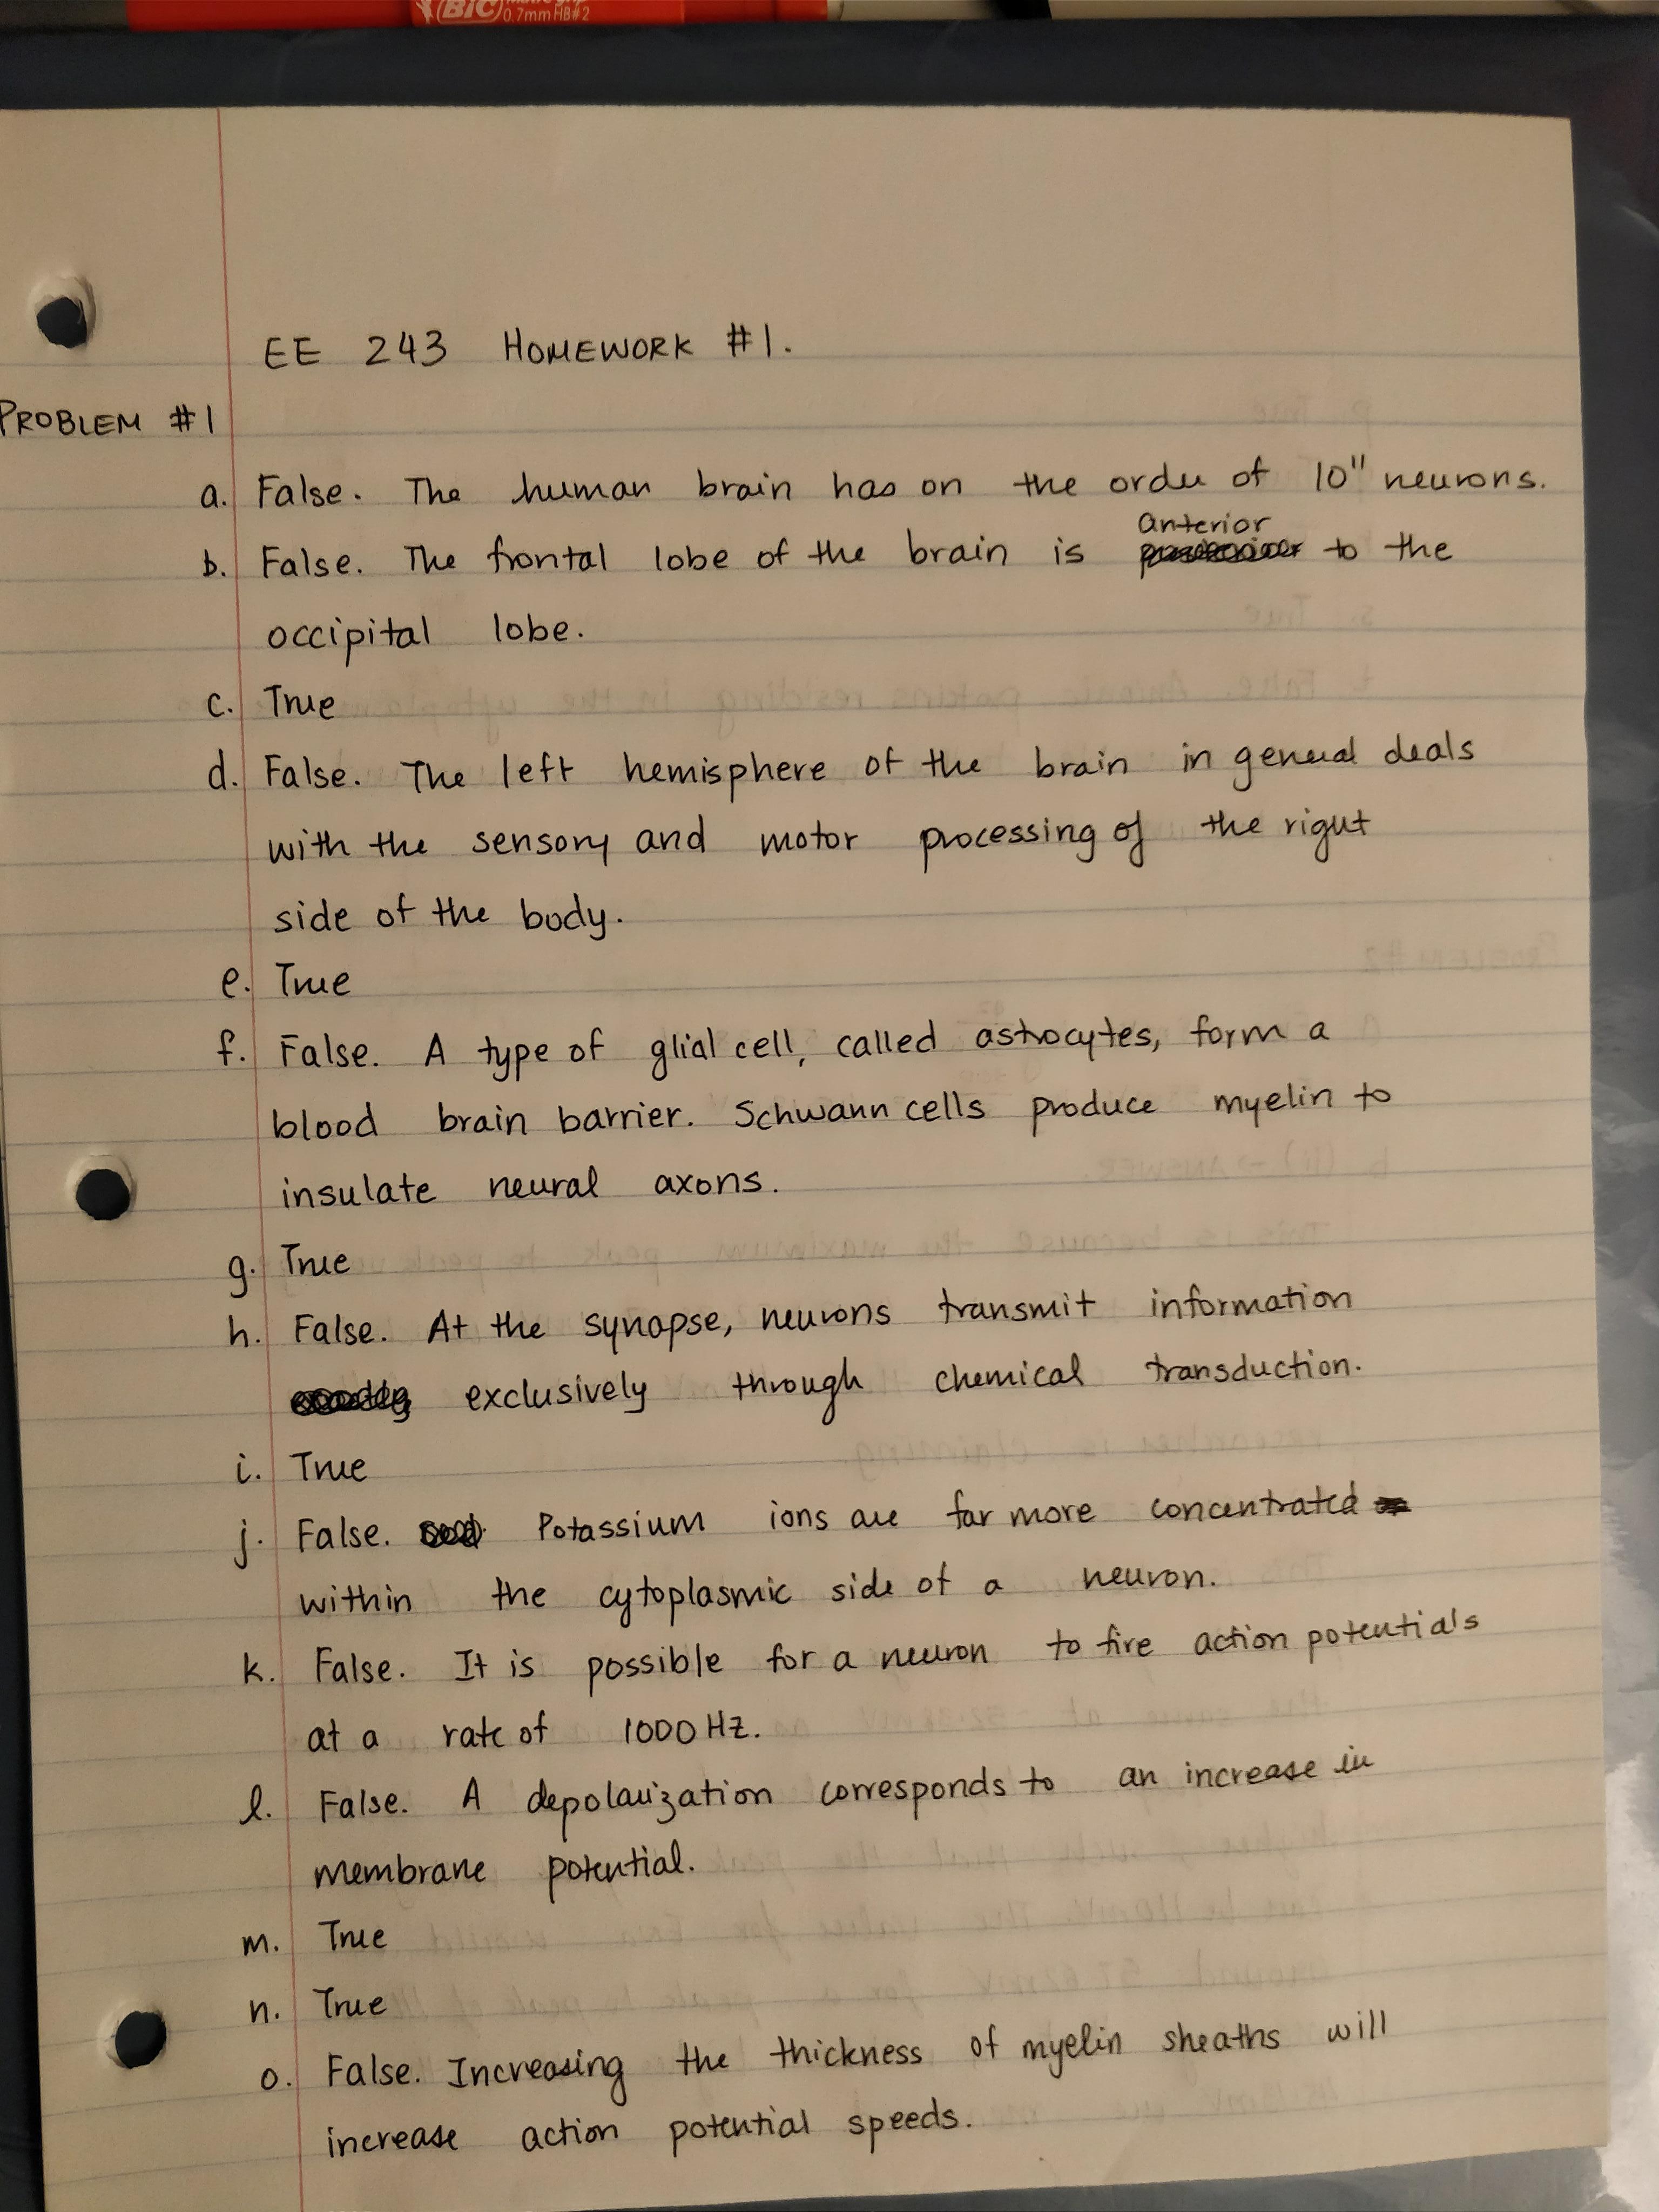 BIC Matic grip
0.7mm HB#2
EE 243 HOMEWORK #1.
PROBLEM #1
a. False. The human brain has on the order of 10¹¹ neurons.
anterior
b. False. The frontal lobe of the brain is to the
occipital lobe.
c. True
d. False. The left hemisphere of the brain in general deals
with the sensory and motor processing of the right
side of the body.
e. True
f. False. A type of glial cell, called astrocytes, form a
blood brain barrier. Schwann cells produce myelin to
insulate neural axons.
g. True
h. False. At the synapse, neurons transmit information
exclusively through chemical transduction.
i. True
j. False. Potassium ions are far more concentrated
within the cytoplasmic side of a neuron.
k. False. It is possible for a neuron to fire action potentials
at a rate of 1000 Hz.
l. False. A depolarization corresponds to an increase in
membrane potential.
m. True
n. True
o. False. Increasing the thickness of myelin sheaths will
increase action potential speeds.